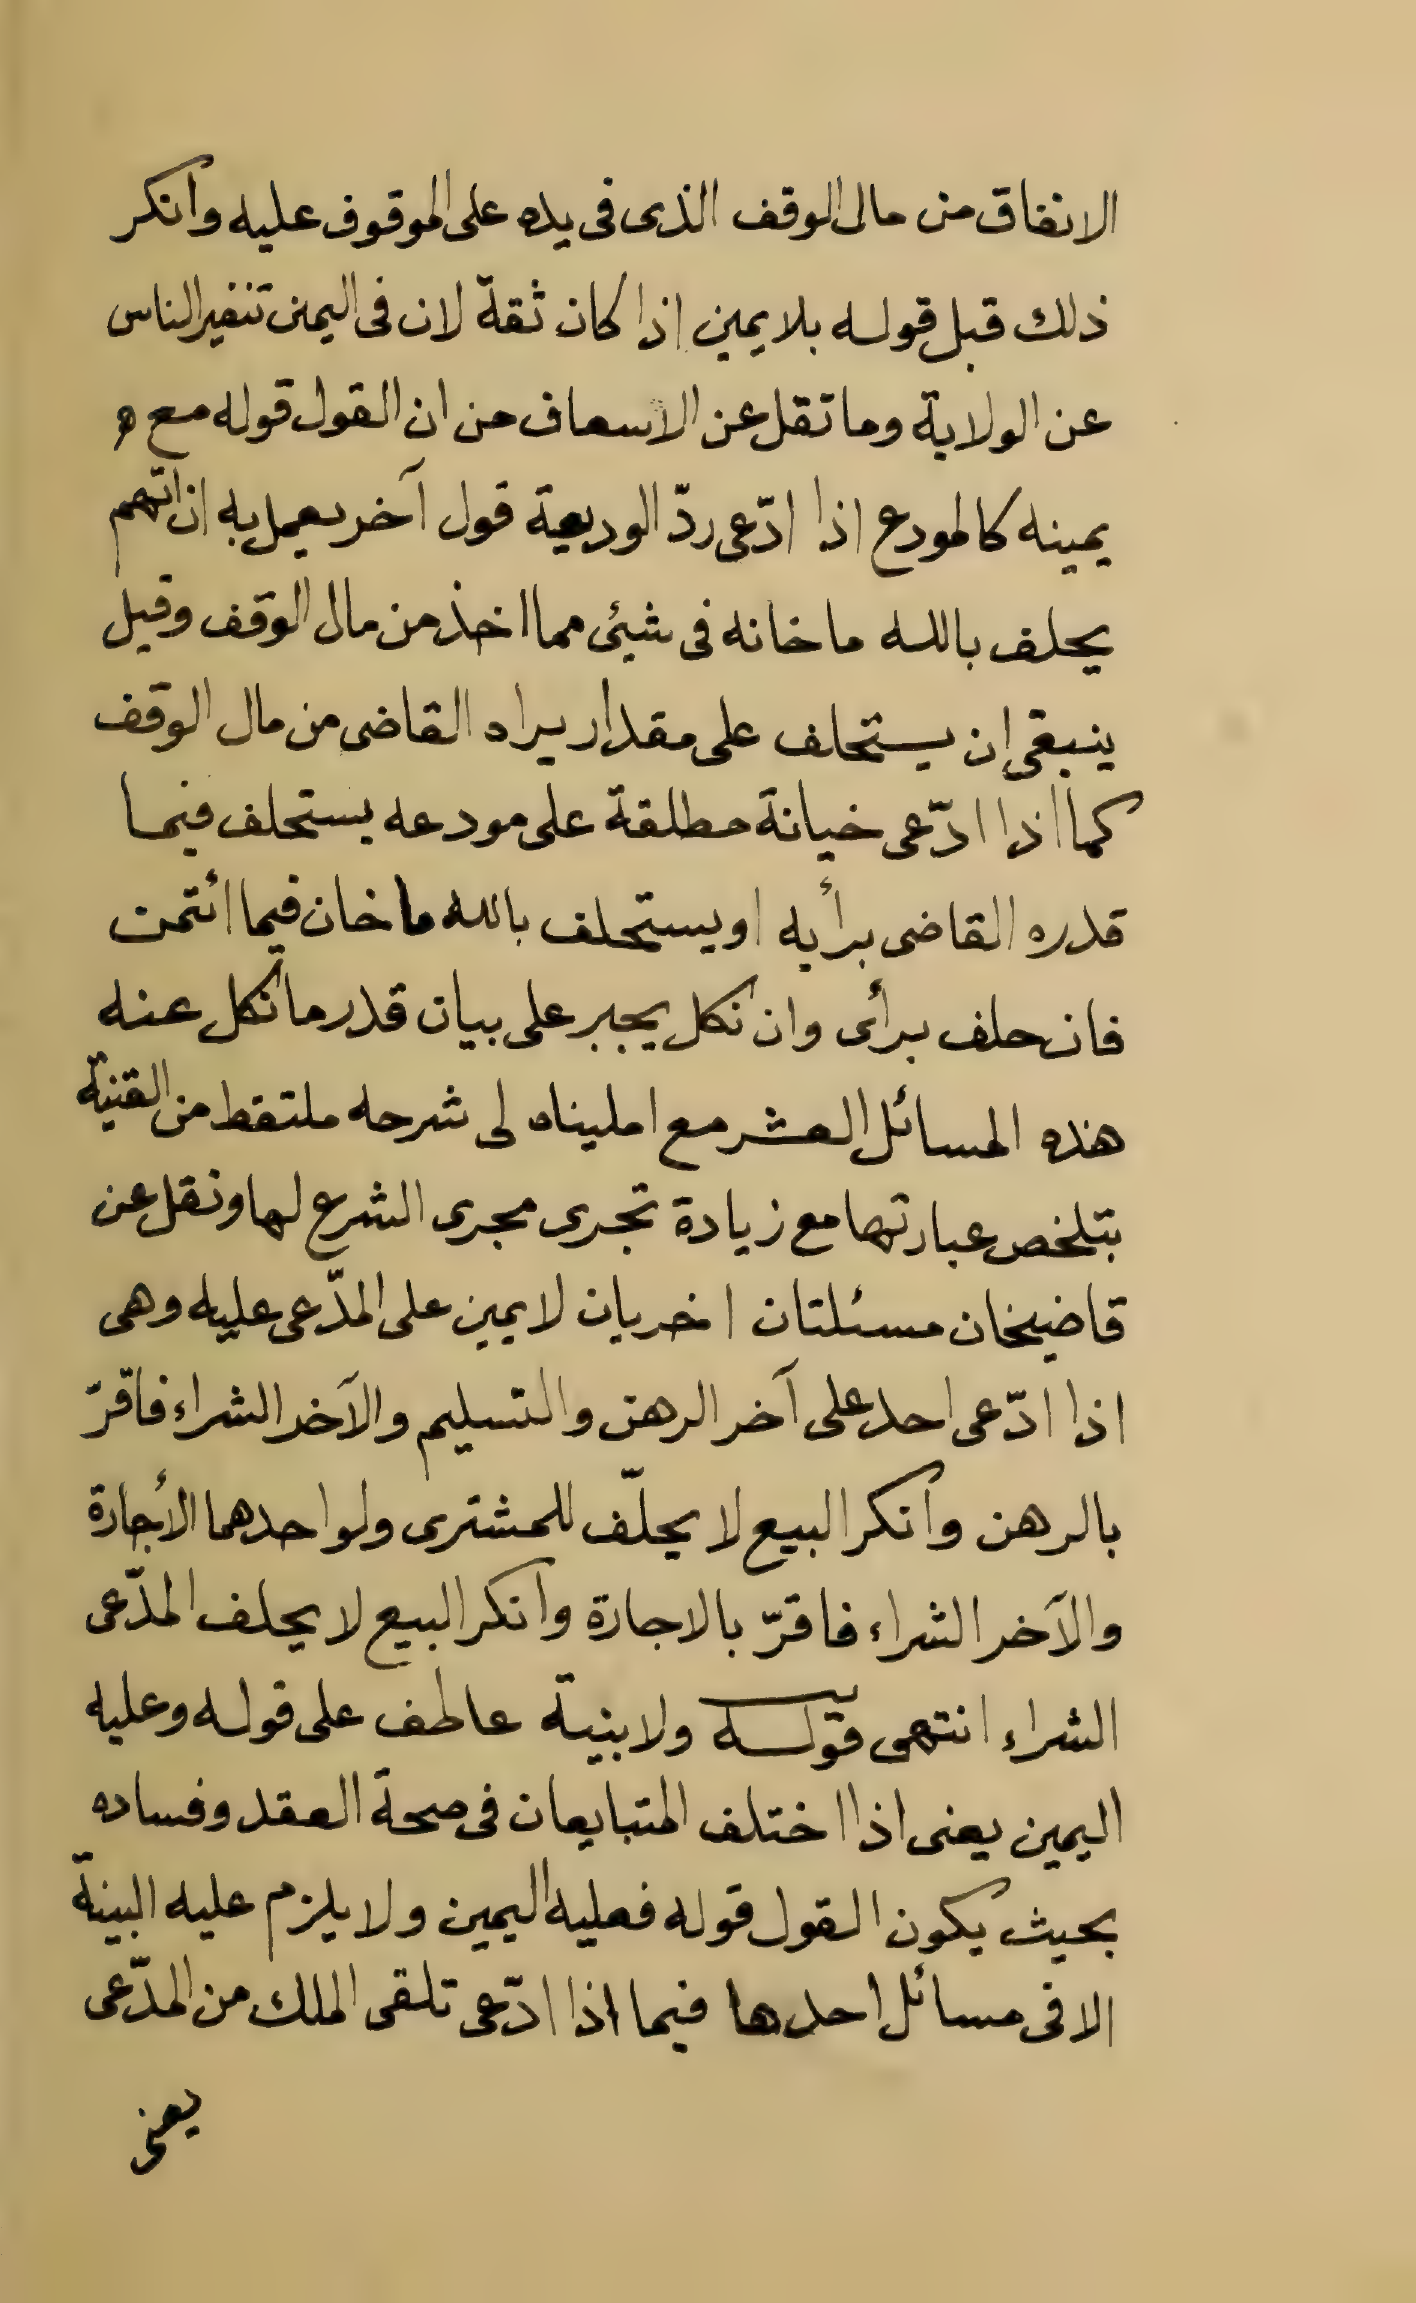 الانفاق من مال الوقف الذى فى يده على الموقوف عليه وانكر
ذلك قبل قوله بلا يمين اذا كان ثقة لان فى اليمين تنفير الناس
عن الولاية وما نقل عن الاسعاف من ان القول قوله مع
يمينه كالمودع اذا ادّعى ردّ الوديعة قول آخر يعمل به ان اتهم
يحلف بالله ما خانه فى شيئى مما اخذ من مال الوقف وقيل
ينبغى ان يستحلف على مقدار يراه القاضى من مال الوقف
كما اذا ادّعى خيانة مطلقة على مودعه يستحلف فيما
قدره القاضى برأيه او يستحلف بالله ما خان فيما ائتمن
فان حلف برأى وان نكل يجبر على بيان قدر ما نكل عنه
هذه المسائل العشر مع امليناه لى شرحه ملتقط من القنية
بتلخص عبارتها مع زيادة تجرى مجرى الشرع لها ونقل عن
قاضيخان مسئلتان اخريان لا يمين على المدّعى عليه وهى
اذا ادّعى احد على آخر الرهن والتسليم والآخر الشراء فاقرّ
بالرهن وانكر البيع لا يحلّف للمشترى ولو احدهما الأجارة
والآخر الشراء فاقرّ بالاجارة وانكر البيع لا يحلف المدّعى
الشراء انتهى قوله ولا بنية عاطف على قوله وعليه
اليمين يعنى اذا اختلف المتبايعان فى صحة العقد وفساده
بحيث يكون القول قوله فعليه اليمين ولا يلزم عليه البينة
الا فى مسائل احدها فيما اذا ادّعى تلقى الملك من المدّعى
يعنى